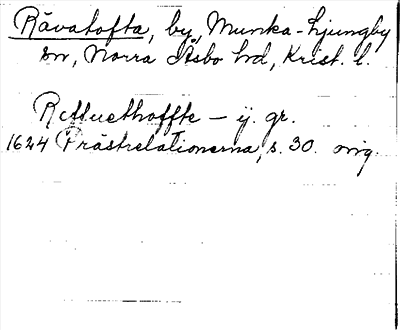 Rävatofta, by, Munka-Ljungby
sn, Norra Åsbo hd, Krist. l.
Reffuethoffte - ij. gr.
1624 Prästrelationerna, s. 30. orig.